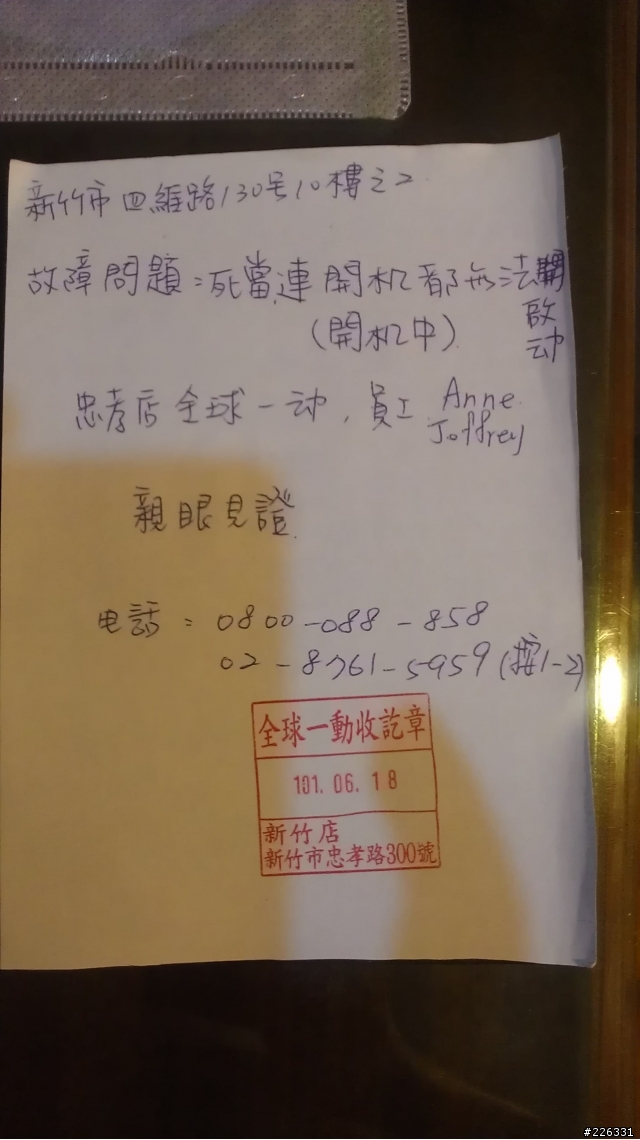 新竹市四維路130号10樓之2
故障問題：死當連開机都無法啟动
（開机中）
忠孝店全球一动，員工 Anne
Joffrey
親眼見證
电話：0800-088-858
02-8761-5959（按1-2）
全球一動收訖章
101. 06. 18
新竹店
新竹市忠孝路300號
#226331